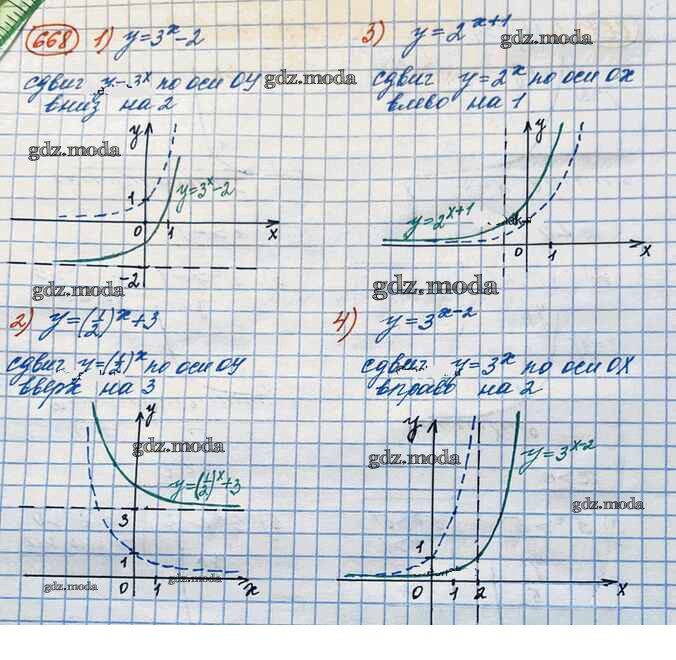 668 1) y=3^x-2
сдвиг y=3^x по оси OY
вниз на 2
gdz.moda
gdz.moda
y
1
0
1
x
y=3^x-2
-2
gdz.moda
2) y=(1/2)^x+3
сдвиг y=(1/2)^x по оси OY
вверх на 3
y
gdz.moda
y=(1/2)^x+3
3
1
0
1
x
gdz.moda
gdz.moda
3) y=2^{x+1}
gdz.moda
сдвиг y=2^x по оси OX
влево на 1
y
y=2^{x+1}
0
1
x
gdz.moda
4) y=3^{x-2}
сдвиг y=3^x по оси OX
вправо на 2
y
gdz.moda
y=3^{x-2}
gdz.moda
1
0
1
2
x